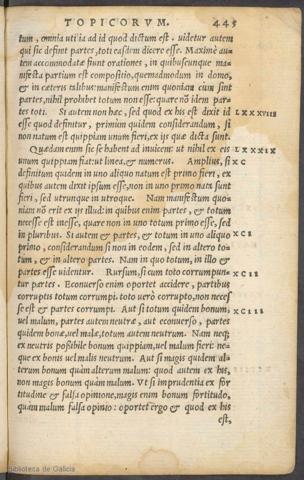 TOPICORVM. 445
tum, omnia utitia ad id quod dictum est. uidetur autem
qui sic definit partes, toti easdem dicere esse. Maximè au-
tem accommodatæ fiunt orationes, in quibuscunque ma-
nifesta partium est compositio, quemadmodum in domo,
& in cæteris talibus: manifestum enim quoniam cùm sint
partes, nihil prohibet totum non esse: quare nō idem par-
tes toti. Si autem non hæc, sed quod ex his est dixit id LXXXVIII
esse quod definitur, primùm quidem considerandum, si
non natum est quippiam unum fieri, ex ijs quæ dicta sunt.
Quædam enim sic se habent ad inuicem: ut nihil ex eis LXXXIX
unum quippiam fiat: ut linea, & numerus. Amplius, si XC
definitum quidem in uno aliquo natum est primo fieri, ex
quibus autem dixit ipsum esse, non in uno primo nata sunt
fieri, sed utrunque in utroque. Nam manifestum quo-
niam nō erit ex ijs illud: in quibus enim partes, & totum
necesse est inesse, quare non in uno totum primo esse, sed
in pluribus. Si autem & partes, & totum in uno aliquo XCI
primo, considerandum si non in eodem, sed in altero to-
tum, & in altero partes. Nam in quo totum, in illo &
partes esse uidentur. Rursum, si cum toto corrumpun- XCII
tur partes. Econuerso enim oportet accidere, partibus
corruptis totum corrumpi. toto uerò corrupto, non neces
se est & partes corrumpi. Aut si totum quidem bonum, XCIII
uel malum, partes autem neutræ, aut econuerso, partes
quidem bonæ, uel malæ, totum autem neutrum. Nam neq;
ex neutris possibile bonum quippiam, uel malum fieri: ne-
que ex bonis uel malis neutrum. Aut si magis quidem al-
terum bonum quàm alterum malum: quod autem ex his,
non magis bonum quàm malum. Vt si imprudentia ex for
titudine & falsa opinione, magis enim bonum fortitudo,
quàm malum falsa opinio: oportet ergo & quod ex his
est,
Biblioteca de Galicia